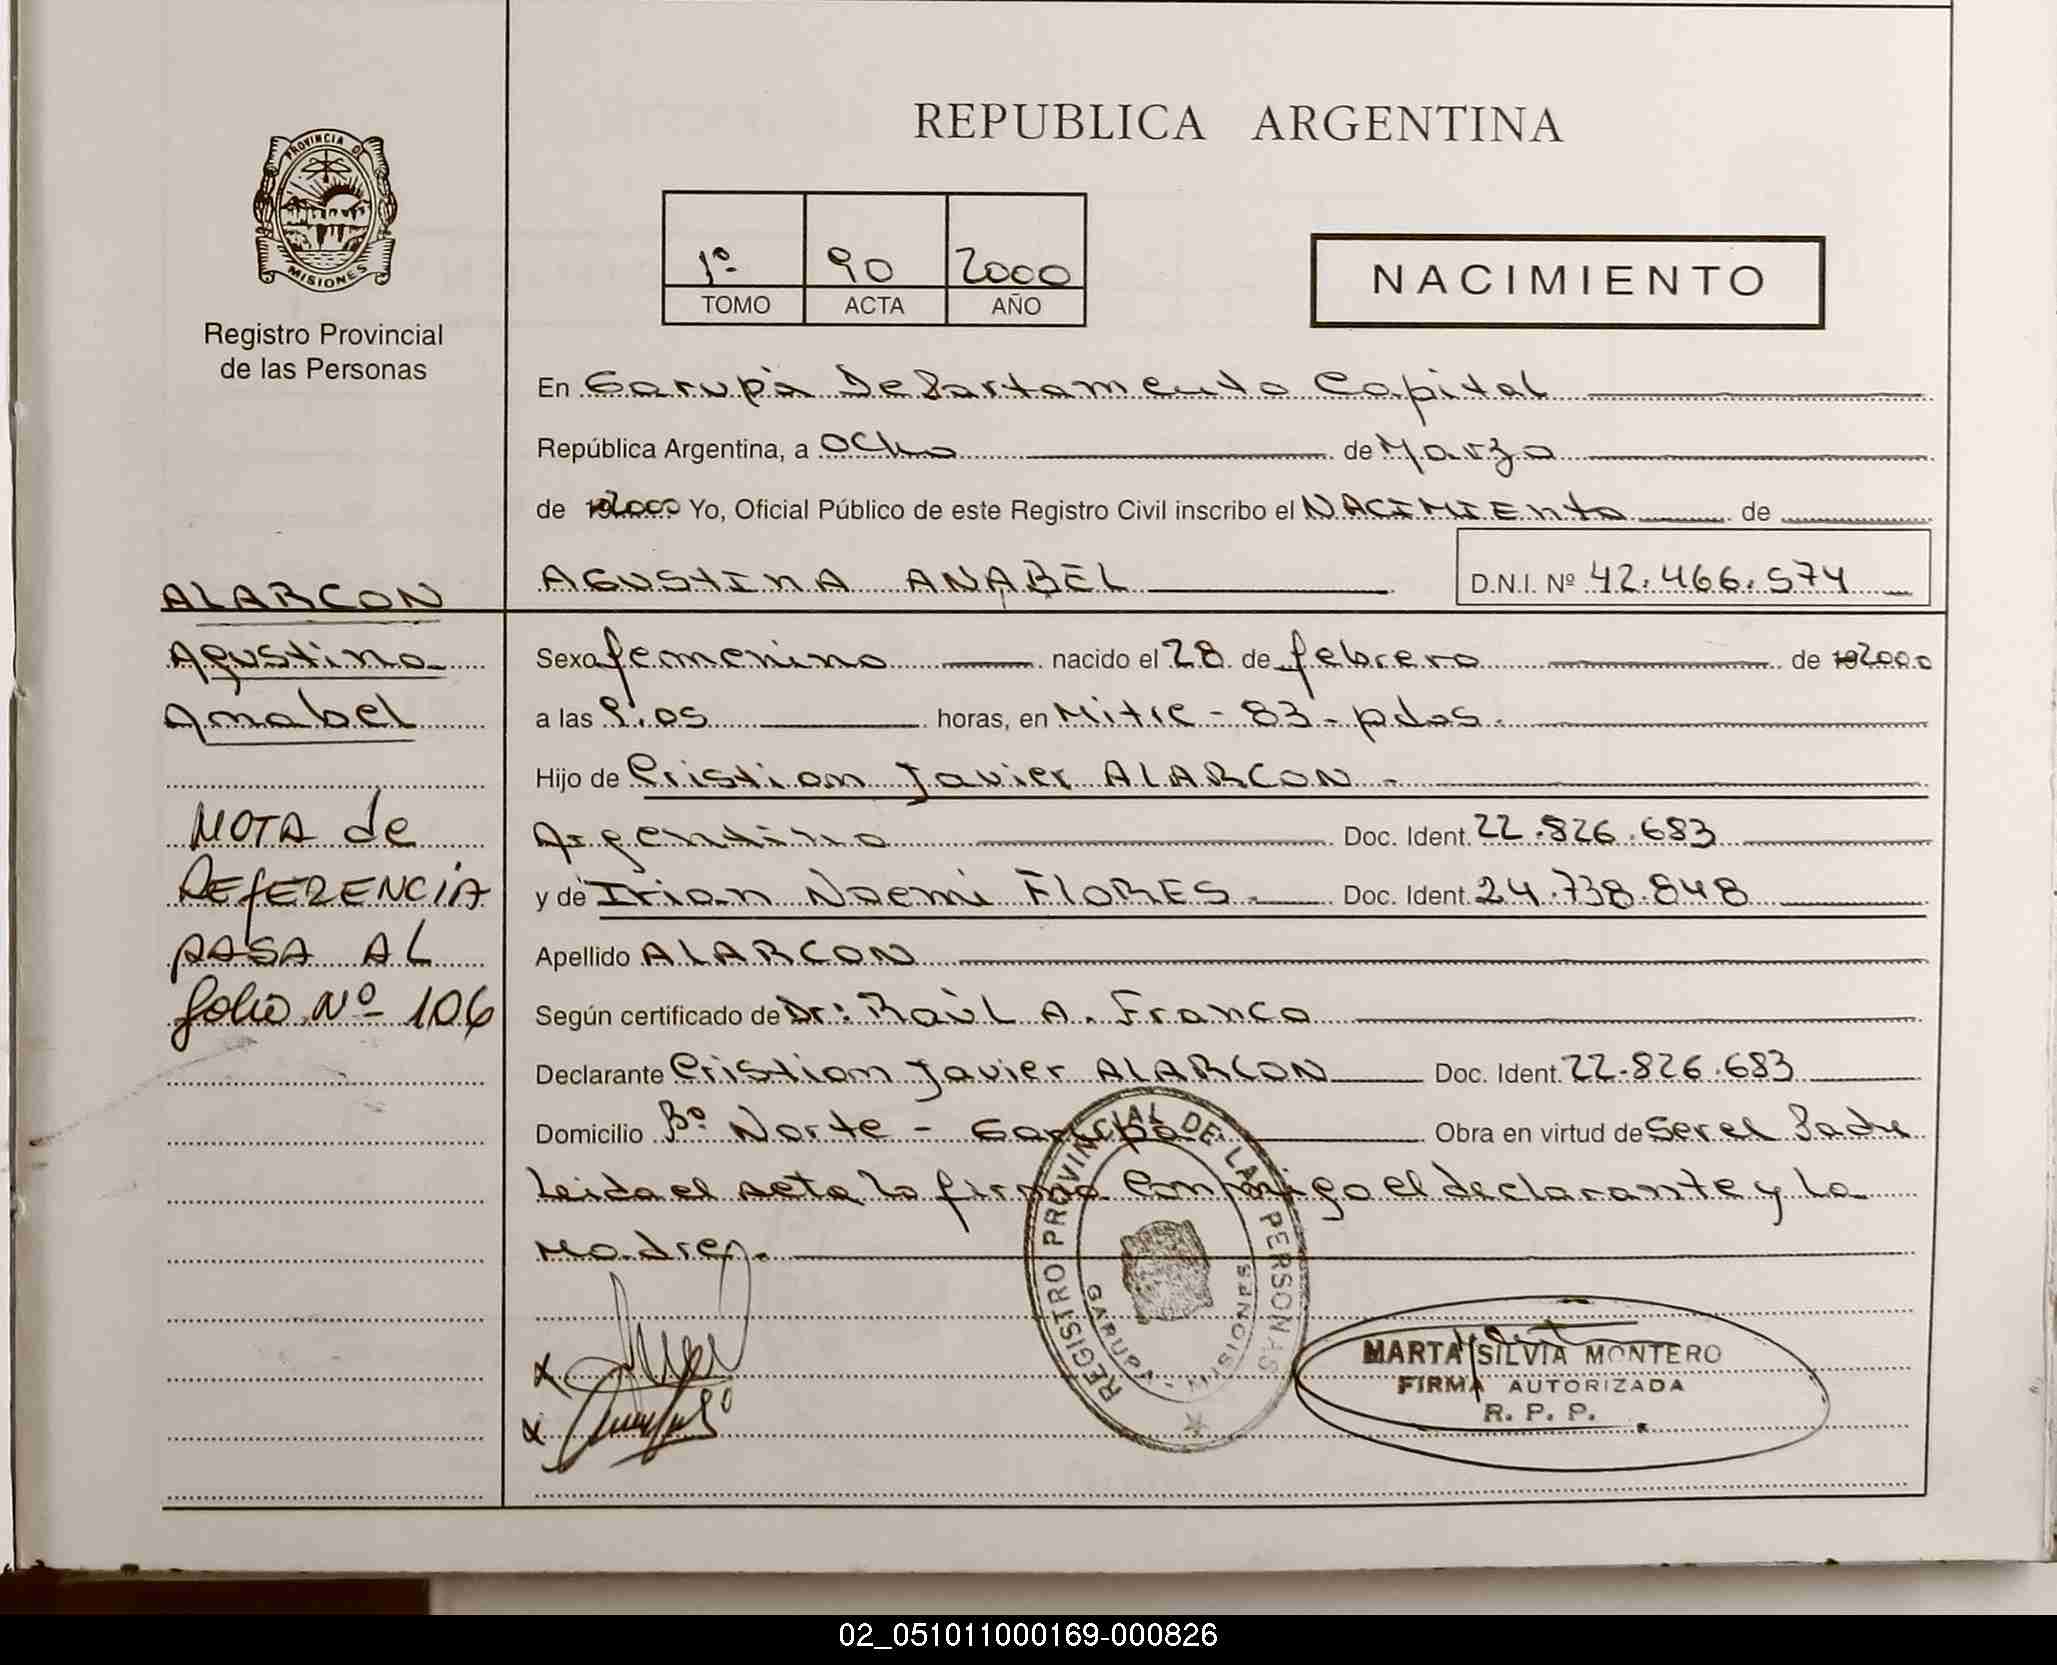 REPUBLICA ARGENTINA
PROVINCIA DE
MISIONES
Registro Provincial
de las Personas
1º 90 2000
TOMO ACTA AÑO
NACIMIENTO
En Garupá Departamento Capital
República Argentina, a Ocho de Marzo
de 2000 Yo, Oficial Público de este Registro Civil inscribo el NACIMIENTO de
AGUSTINA ANABEL D.N.I. Nº 42.466.574
ALARCON
Agustina
Anabel
NOTA de
REFERENCIA
PASA AL
folio Nº 106
Sexo femenino nacido el 28 de febrero de 2000
a las 9.05 horas, en Mitre - 83 - pdas.
Hijo de Cristian Javier ALARCON -
Argentino Doc. Ident. 22.826.683
y de Irian Noemi FLORES. Doc. Ident. 24.738.848
Apellido ALARCON
Según certificado de Dr: Raúl A. Franco
Declarante Cristian Javier ALARCON Doc. Ident. 22.826.683
Domicilio Bº Norte - Garupá Obra en virtud de Ser el Padre
Leida el acta la firma Conmigo el declarante y La
Madre.
x
x
REGISTRO PROVINCIAL DE LAS PERSONAS
GARUPA - MISIONES
MARTA SILVIA MONTERO
FIRMA AUTORIZADA
R. P. P.
02_051011000169-000826